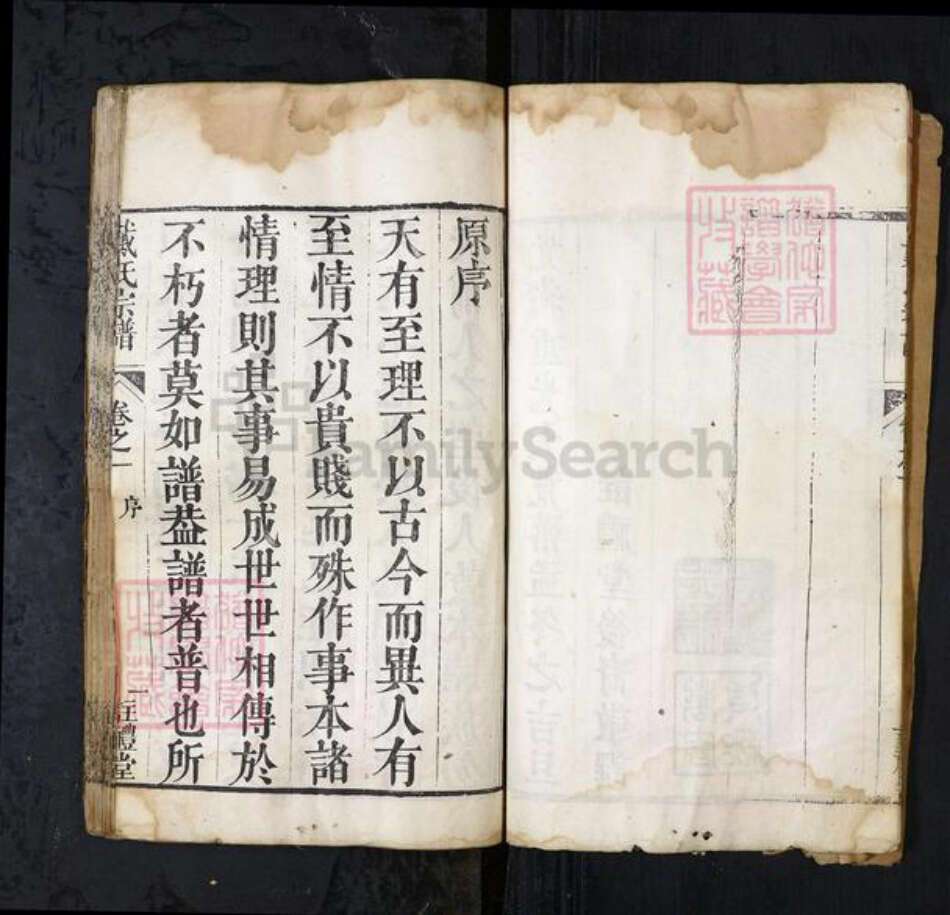 原序
天有至理不以古今而異人有
至情不以貴賤而殊作事本諸
情理則其事易成世世相傳於
不朽者莫如譜葢譜者普也所
戴氏宗譜 卷之一 序 一 註禮堂
譜學會
收藏
FamilySearch